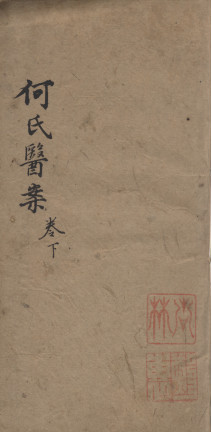 何氏醫案
卷下